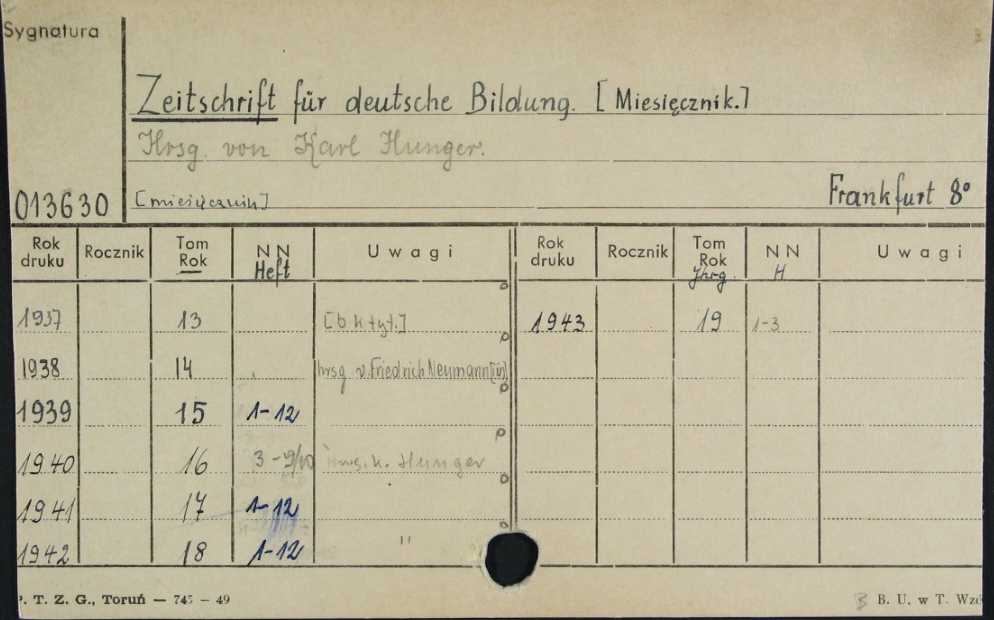 Sygnatura
Zeitschrift für deutsche Bildung. [Miesięcznik.]
Hrsg. von Karl Hunger.
013630 [miesięcznik] Frankfurt 8°
Rok druku Rocznik Tom Rok NN Heft Uwagi Rok druku Rocznik Tom Rok Jhrg. NN H Uwagi
1937 13 [b. k. tyt.] 1943 19 1-3
1938 14 hrsg v. Friedrich Neumann [in]
1939 15 1-12
1940 16 3-9/10 hrsg. K. Hunger
1941 17 1-12
1942 18 1-12 "
P. T. Z. G., Toruń — 745 — 49 B. U. w T. Wzó